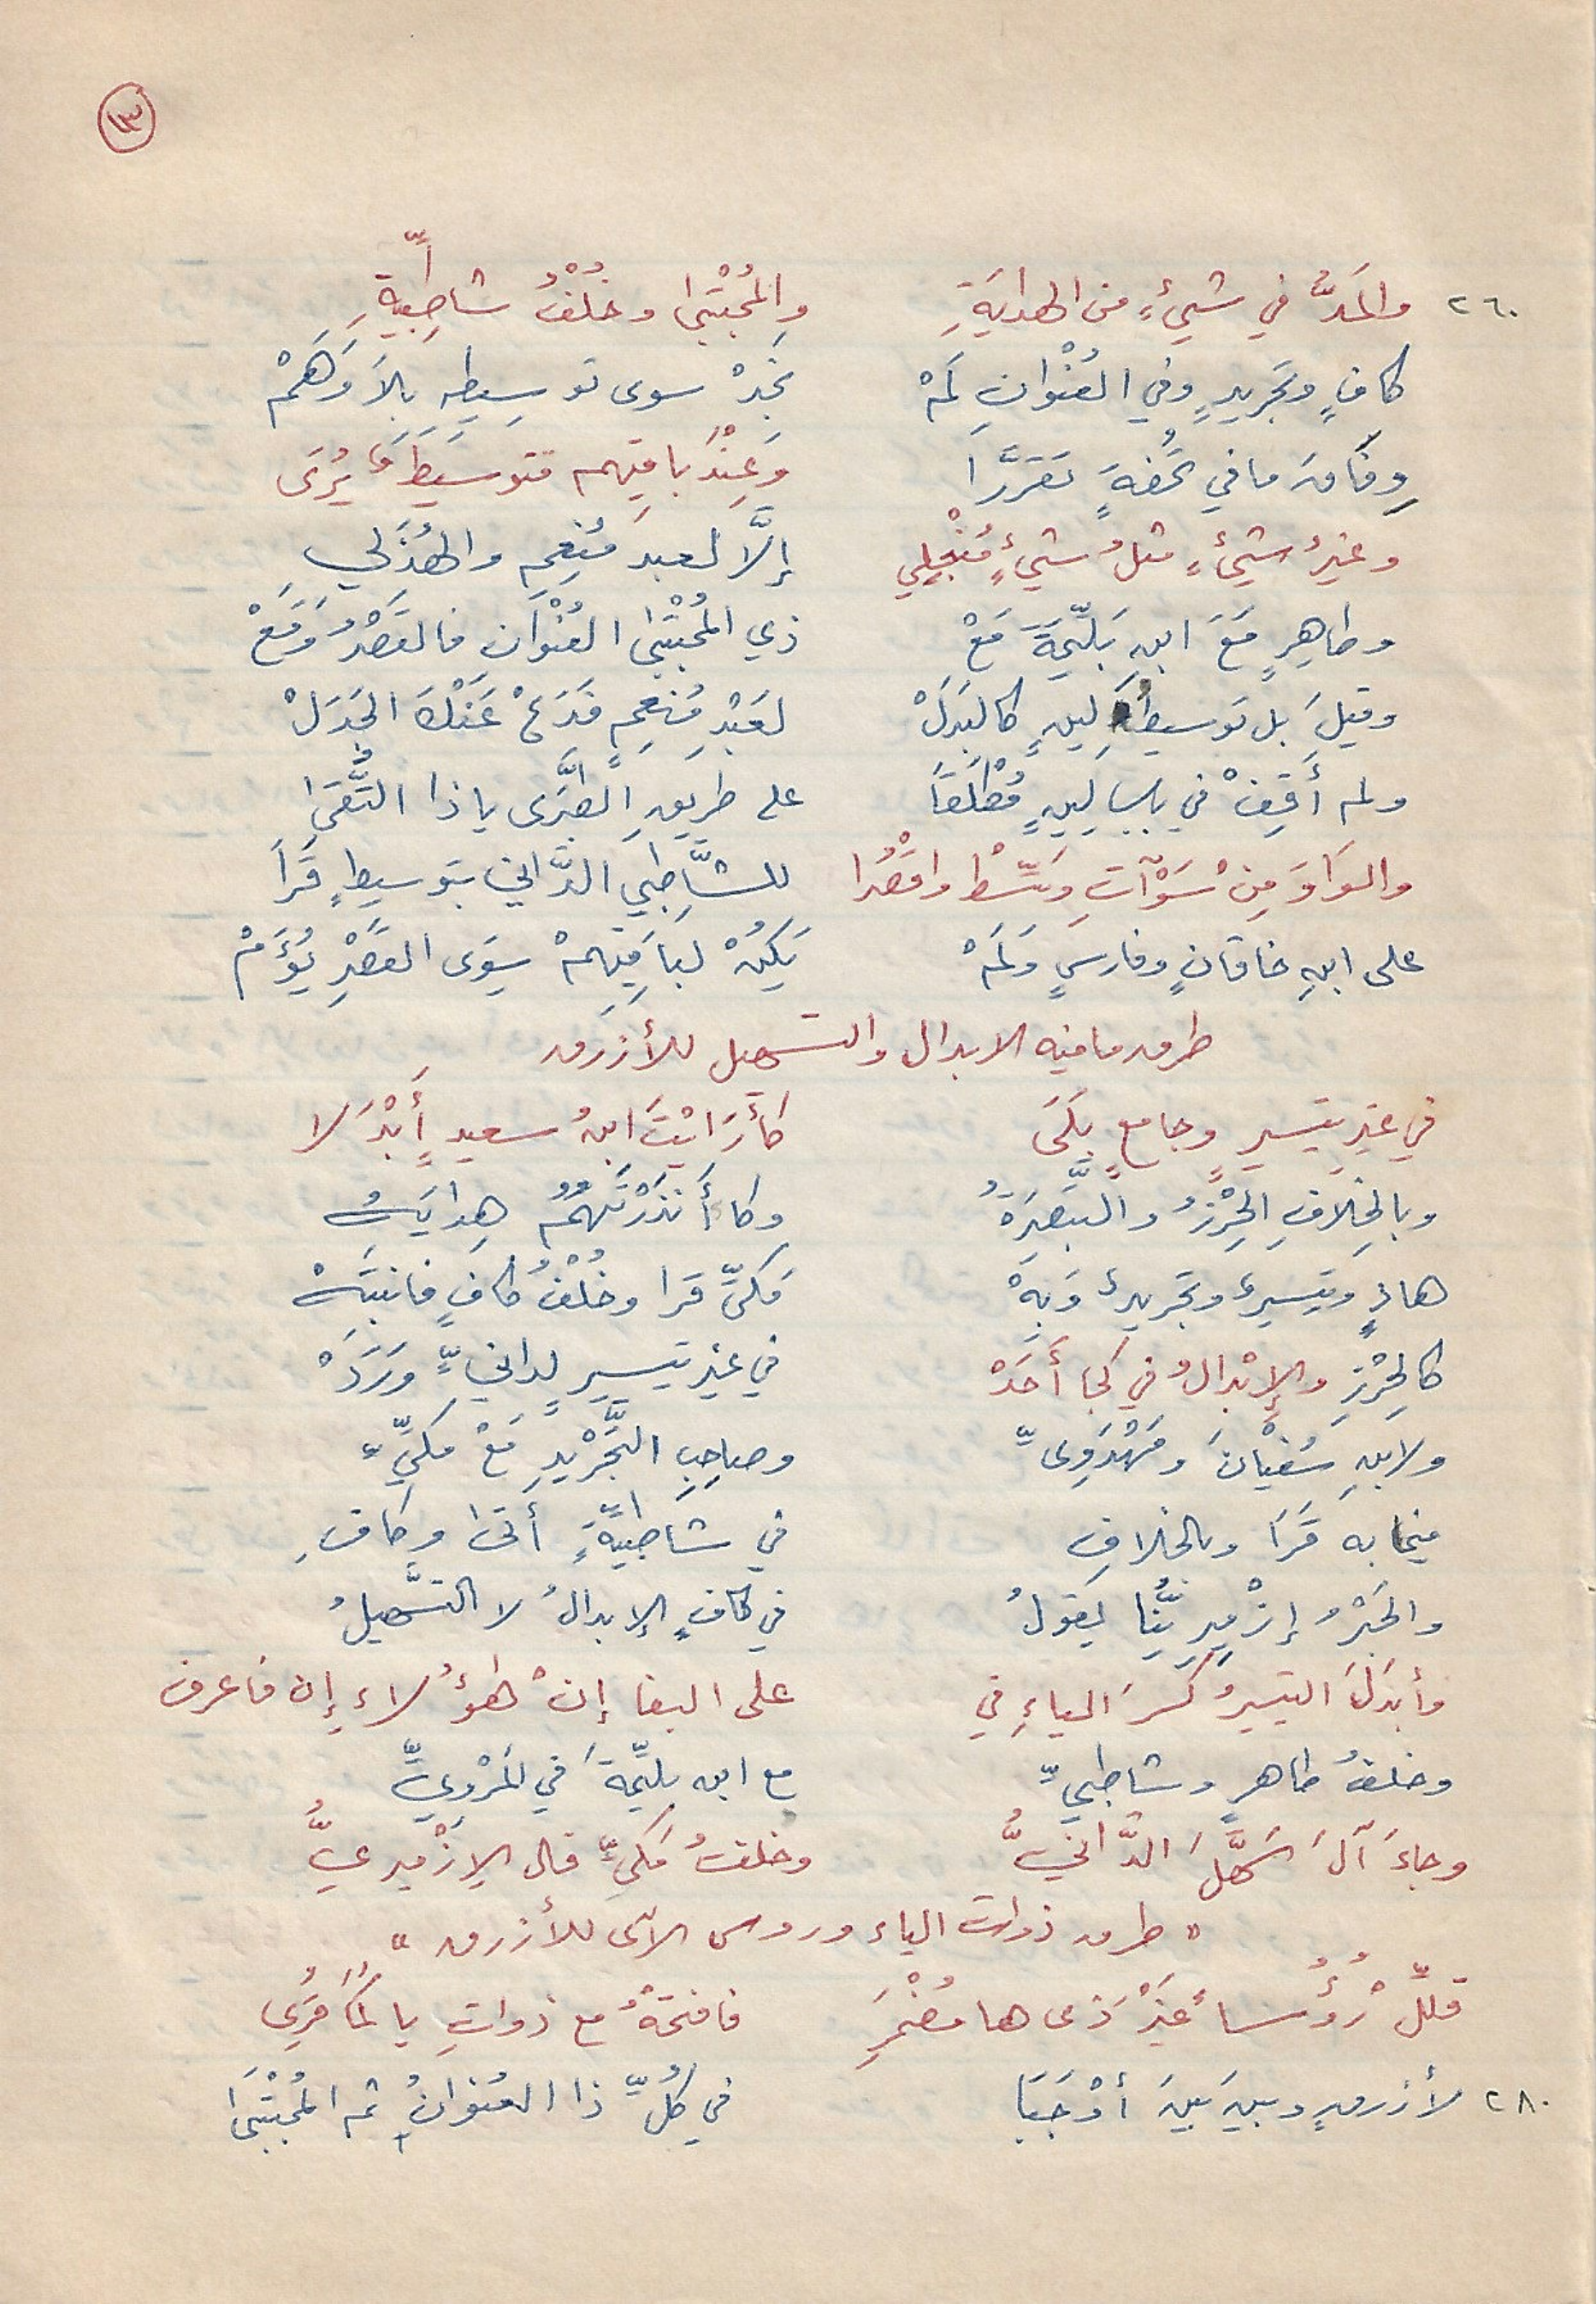 ١٣
٢٦٠ والمَدُّ في شيْءٍ من الهدايَةِ والمُجْتَبَى وخُلْفُ شاطِبِيَّةِ
كافٍ وتجريدٍ وفي العُنْوانِ لَمْ نَجِدْ سوى توسيطِهِ بِلَا وَهَمْ
وِفَاقَ ما في تُحْفَةٍ تَقَرَّرَا وَعِنْدَ باقيهم توسيط يُرَى
وغيرُ شيْءٍ مثلُ شيْءٍ مُنْجَلِي إلَّا لعبد مُنعِمِ والهُذَلِي
وطاهِرٍ مَعَ ابنِ بَلِّيمَةَ مَعْ ذي المُجْتَبَى العُنْوَانِ فالقَصْرُ وَقَعْ
وقيلَ بل توسيطُ لينٍ كالبَدَلْ لعَبْدِ مُنْعِمٍ فَدَعْ عَنْكَ الجَدَلْ
ولم أَقِفْ في باب لِينٍ مُطْلَقَاً على طريقِ الطَّبَرَى يا ذا التُّقَى
والوَاوَ مِنْ سَوْآتِ وَسِّطْ واقْصُرا للشَّاطِبي الدَّاني بتوسيطٍ قَرَا
على ابنِ خاقانٍ وفارسٍ وَلَمْ يَكُنْ لِبَاقِيهِمْ سِوَى القَصْرِ يُؤَمْ
طرق ما فيه الابدال والتسهيل للأزرق
في غيرِ تيسيرٍ وجامعٍ بَلَى كَأَرَايْتَ ابنُ سعيدٍ أَبْدَلا
وبالخِلافِ الحِرْزُ والتَّبْصِرَةُ وكَأَأَنْذَرْتَهُمُ هِدايَةُ
هادٍ وتيسيرٌ وتجريدٌ وَبِهْ مَكيٌّ قرا وخُلْفُ كافٍ فانتَبِهْ
كالحِرْزِ والإِبْدالُ في كجا أَحَدْ في غير تيسيرٍ لِدانيٍّ وَرَدْ
ولابنِ سُفْيَانَ ومَهْدَوِىِّ وصاحِبِ التَّجْرِيدِ مَعْ مكيِّ
فيما به قَرَا وبالخلافِ في شاطِبيَّةٍ أتى وكافِ
والحَبْرُ إزْمِيرِيُّنا يقولُ في كافٍ الإبدالُ لا التسهيلُ
وأبدَلَ التيسيرُ كسرَ الياءِ في على البغا إنْ هؤُلاءِ إن فاعرف
وخلفُ طاهرٍ وشاطبيِّ مع ابن بليِّمةَ في المَرْوِيِّ
وجاءَ آلَ سَهَّلَ الدَّانيُّ وخلفُ مكيٍّ قال الإِزْميريُّ
« طرق ذوات الياء وروس الآى للأزرق »
قلِّلْ رُؤُسا غيْرَ ذى ها مُضْمَرِ فافتحْهُ مع ذواتِ يا لمُقرِى
٢٨٠ لأزرقٍ وبينَ بينَ أوْجَبَا في كُلِّ ذا العُنوانُ ثم المُجْتَبَى